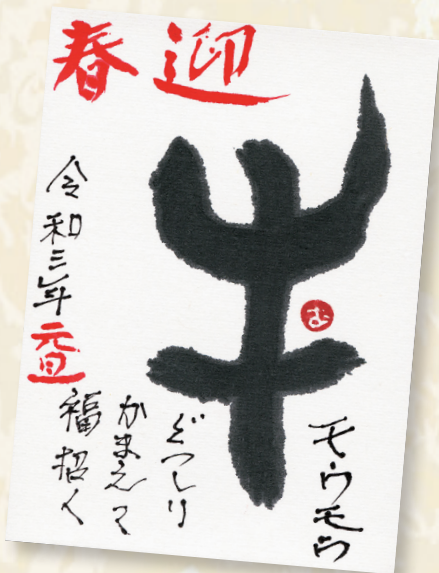 迎春
牛
む
モウモウ
どっしり
かまえて
福招く
令和三年元旦